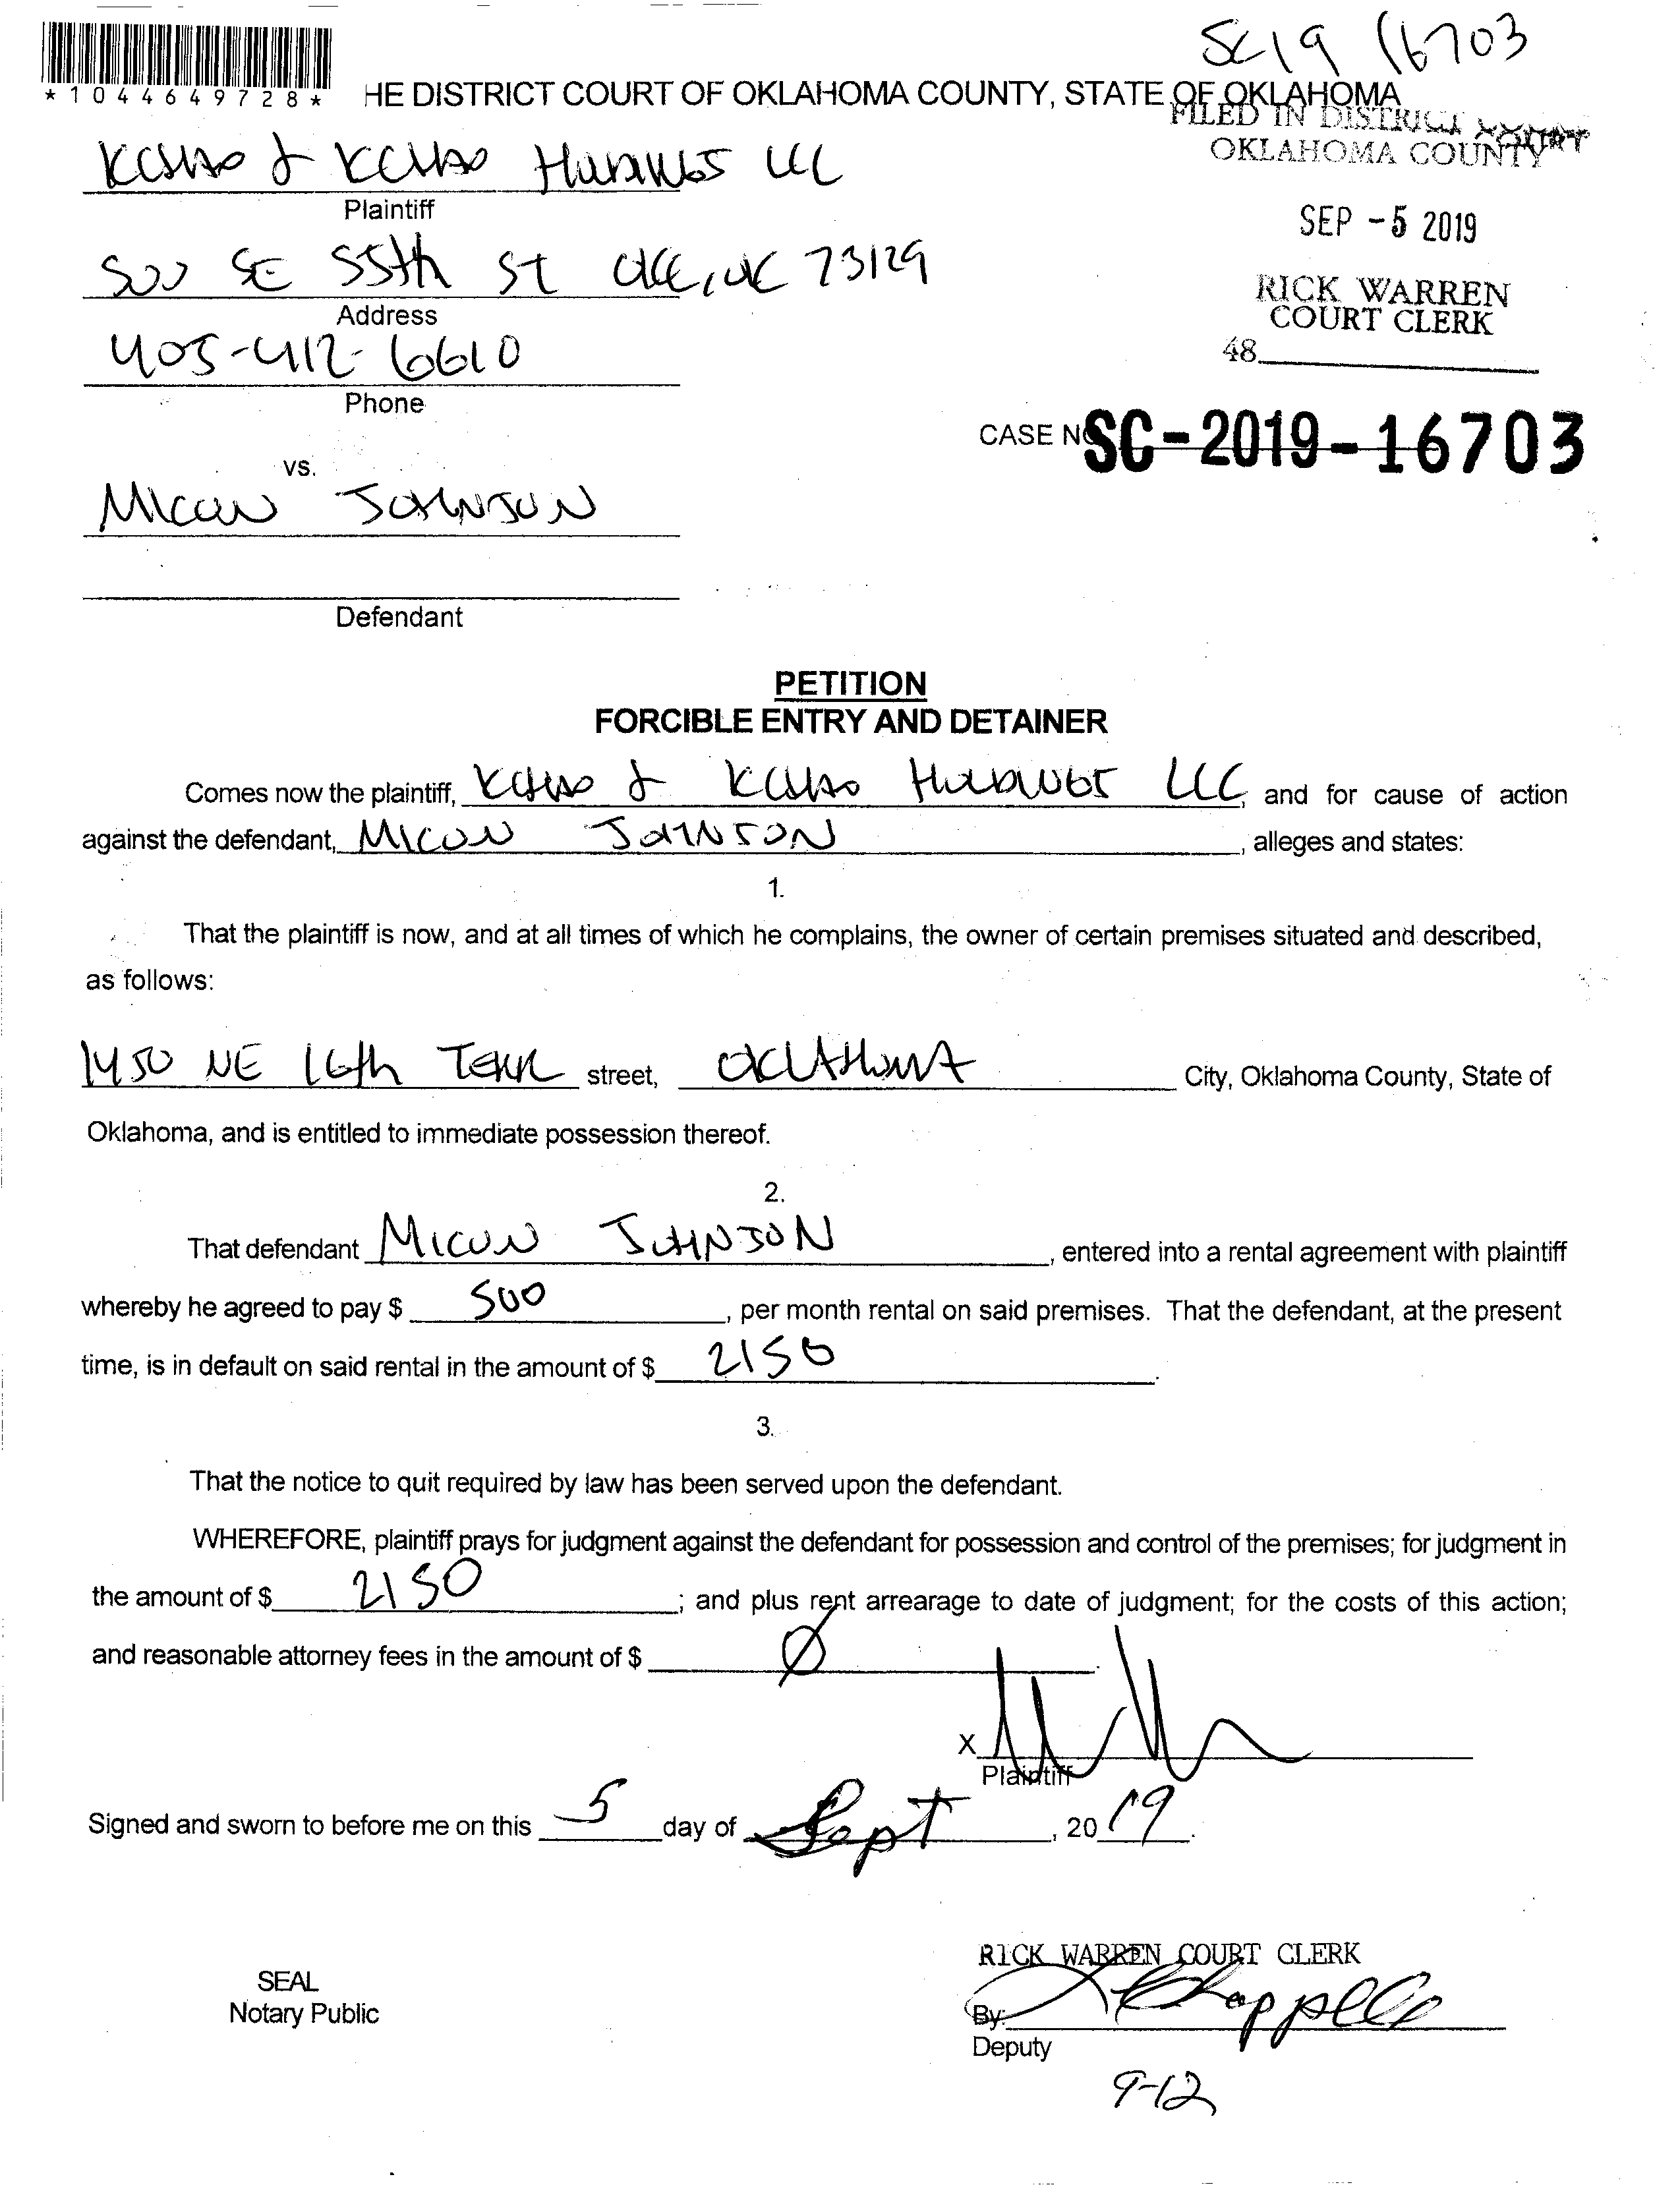 SC19 16703
*1044649728*
HE DISTRICT COURT OF OKLAHOMA COUNTY, STATE OF OKLAHOMA
FILED IN DISTRICT COURT
OKLAHOMA COUNTY
& LLC
Plaintiff
SEP -5 2019
500 SE 55th St OKC, OK 73129
Address
RICK WARREN
COURT CLERK
405-412-6610
48
Phone
CASE NO SC-2019-16703
vs.
MICON JOHNSON
Defendant
PETITION
FORCIBLE ENTRY AND DETAINER
Comes now the plaintiff, & LLC, and for cause of action
against the defendant, MICON JOHNSON, alleges and states:
1.
That the plaintiff is now, and at all times of which he complains, the owner of certain premises situated and described,
as follows:
1450 NE 16th TERR street, OKLAHOMA City, Oklahoma County, State of
Oklahoma, and is entitled to immediate possession thereof.
2.
That defendant MICON JOHNSON, entered into a rental agreement with plaintiff
whereby he agreed to pay $ 500, per month rental on said premises. That the defendant, at the present
time, is in default on said rental in the amount of $ 2150.
3.
That the notice to quit required by law has been served upon the defendant.
WHEREFORE, plaintiff prays for judgment against the defendant for possession and control of the premises; for judgment in
the amount of $ 2150; and plus rent arrearage to date of judgment; for the costs of this action;
and reasonable attorney fees in the amount of $ Ø.
X
Plaintiff
Signed and sworn to before me on this 5 day of Sept, 20 19.
RICK WARREN COURT CLERK
SEAL
Notary Public
By: Chappelle
Deputy
9-12